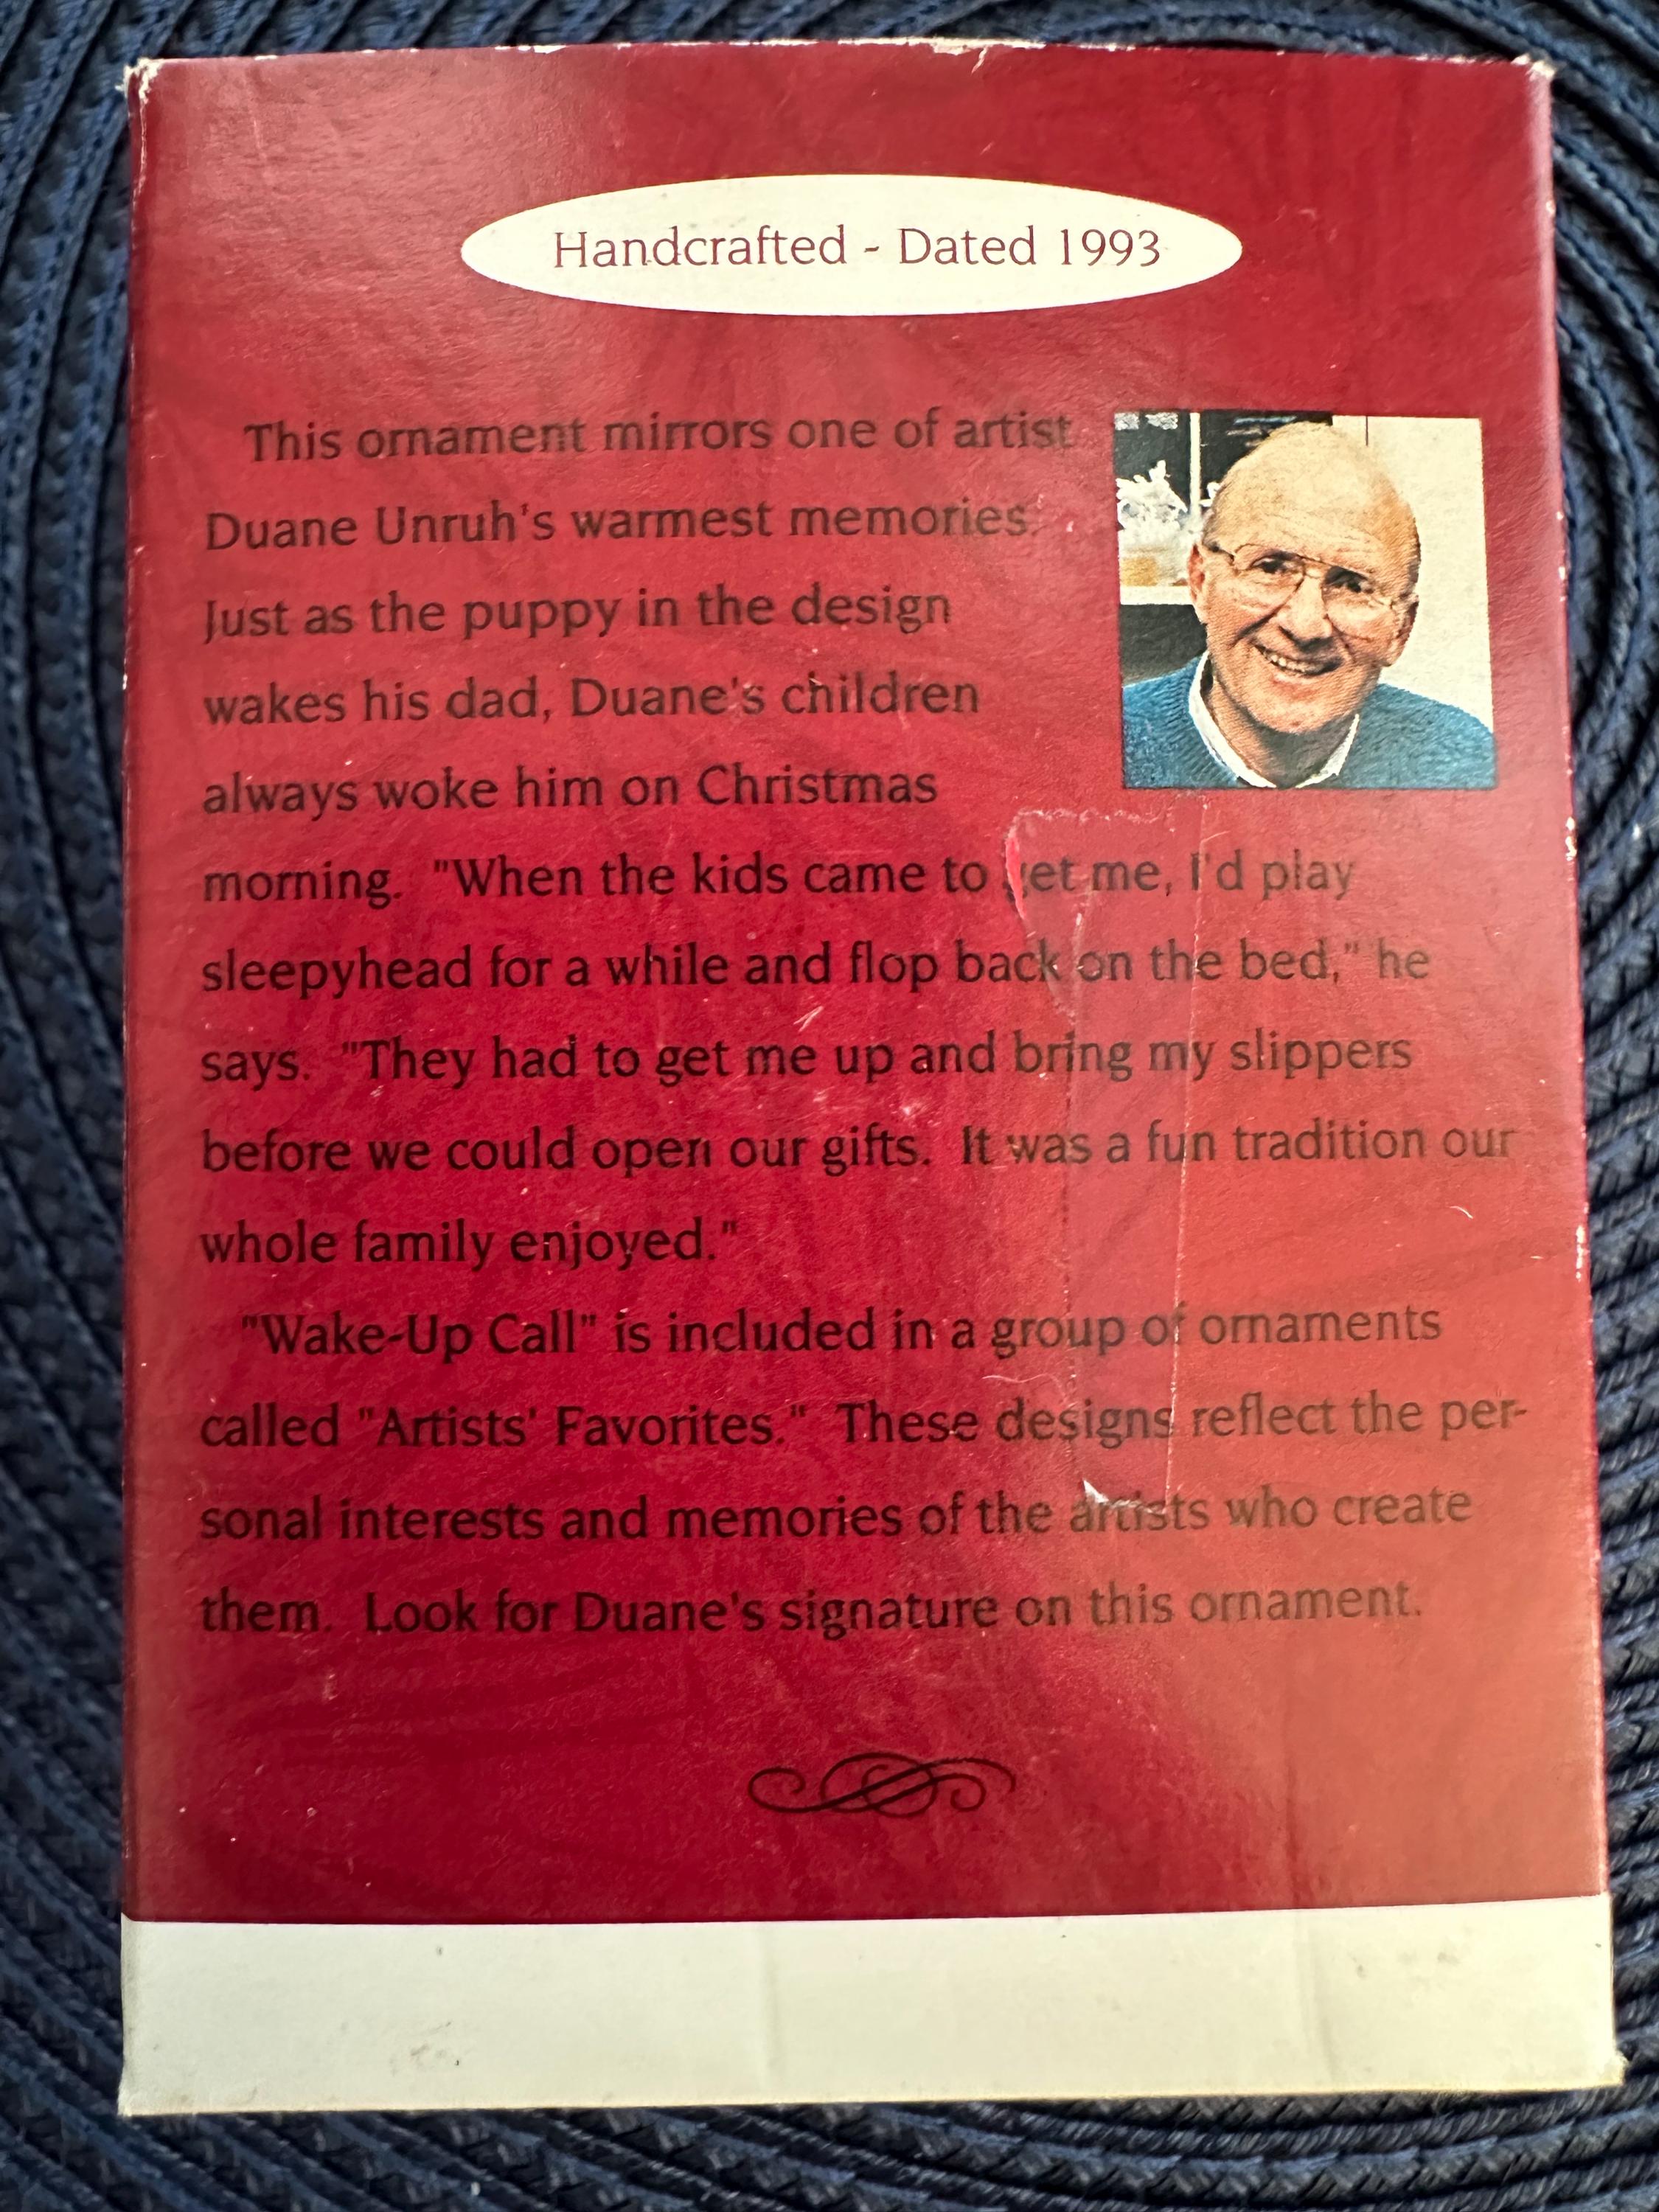 Handcrafted - Dated 1993
This ornament mirrors one of artist
Duane Unruh's warmest memories.
Just as the puppy in the design
wakes his dad, Duane's children
always woke him on Christmas
morning. "When the kids came to get me, I'd play
sleepyhead for a while and flop back on the bed," he
says. "They had to get me up and bring my slippers
before we could open our gifts. It was a fun tradition our
whole family enjoyed."
"Wake-Up Call" is included in a group of ornaments
called "Artists' Favorites." These designs reflect the per-
sonal interests and memories of the artists who create
them. Look for Duane's signature on this ornament.